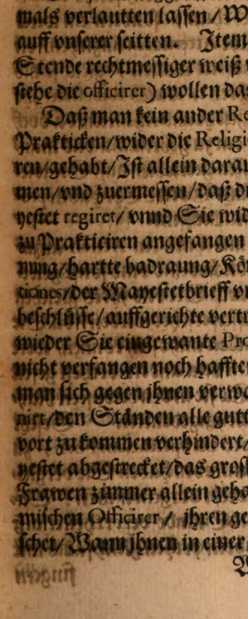 mals verlautten lassen / W
auff vnserer seitten. Item
Stende rechtmessiger weiß
siehe die officirer) wollen da
Daß man kein ander Re
Prakticken/wider die Religi
ren/gehabt/Ist allein darau
men/vnd zuermessen/daß d
yestet regiret/ vnnd Sie wid
zu Prakticiren angefangen
nung/hartte badraung/Kö
der Mayestetbrieff v
beschlüsse/auffgerichte vert
wieder Sie eingewante Pro
nicht verfangen noch hafft
man sich gegen jhnen verw
den Ständen alle gutt
vort zu kommen verhindert/
yestet abgestrecket/das gros
Frawen zimmer allein geha
mischen Officirer / jhren ge
schet/Wann jhnen in einer